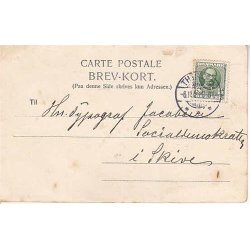 CARTE POSTALE
BREV-KORT.
(Paa denne Side skrives kun Adressen.)
Til
Hr. Typograf Jacobsen
Socialdemokraten
i Skive